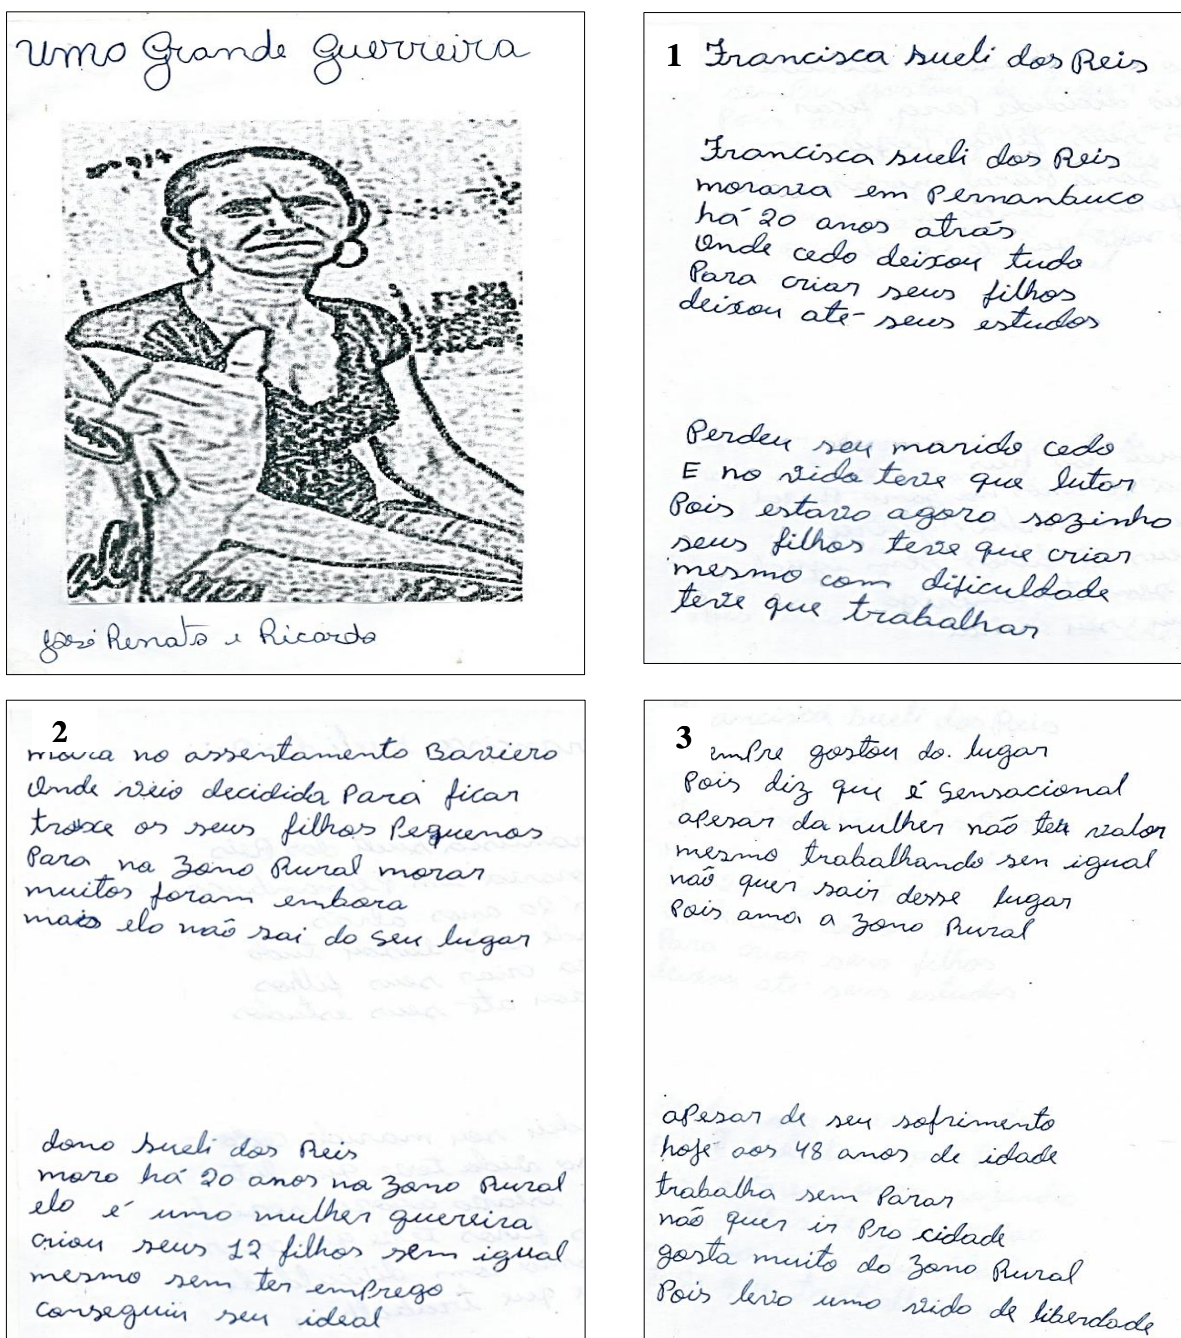 uma Grande Guerreira
José Renato e Ricardo
1 Francisca sueli dos Reis
Francisca sueli dos Reis
morava em Pernambuco
há 20 anos atrás
Onde cedo deixou tudo
Para criar seus filhos
deixou até seus estudos
Perdeu seu marido cedo
E na vida teve que lutar
Pois estava agora sozinha
seus filhos teve que criar
mesmo com dificuldade
teve que trabalhar
2
mora no assentamento Baviera
Onde veio decidida Para ficar
troxe os seus filhos Pequenos
Para na Zona Rural morar
muitos foram embora
mais ela não sai do seu lugar
dona sueli dos Reis
mora há 20 anos na Zona Rural
ela é uma mulher guereira
criou seus 12 filhos sem igual
mesmo sem ter emprego
conseguiu seu ideal
3
empre gostou do lugar
Pois diz que é Sensacional
apesar da mulher não ter valor
mesmo trabalhando sen igual
não quer sair desse lugar
Pois ama a Zona Rural
apesar de seu sofrimento
hoje aos 48 anos de idade
trabalha sem Parar
não quer ir Pra cidade
gosta muito da Zona Rural
Pois leva uma vida de liberdade